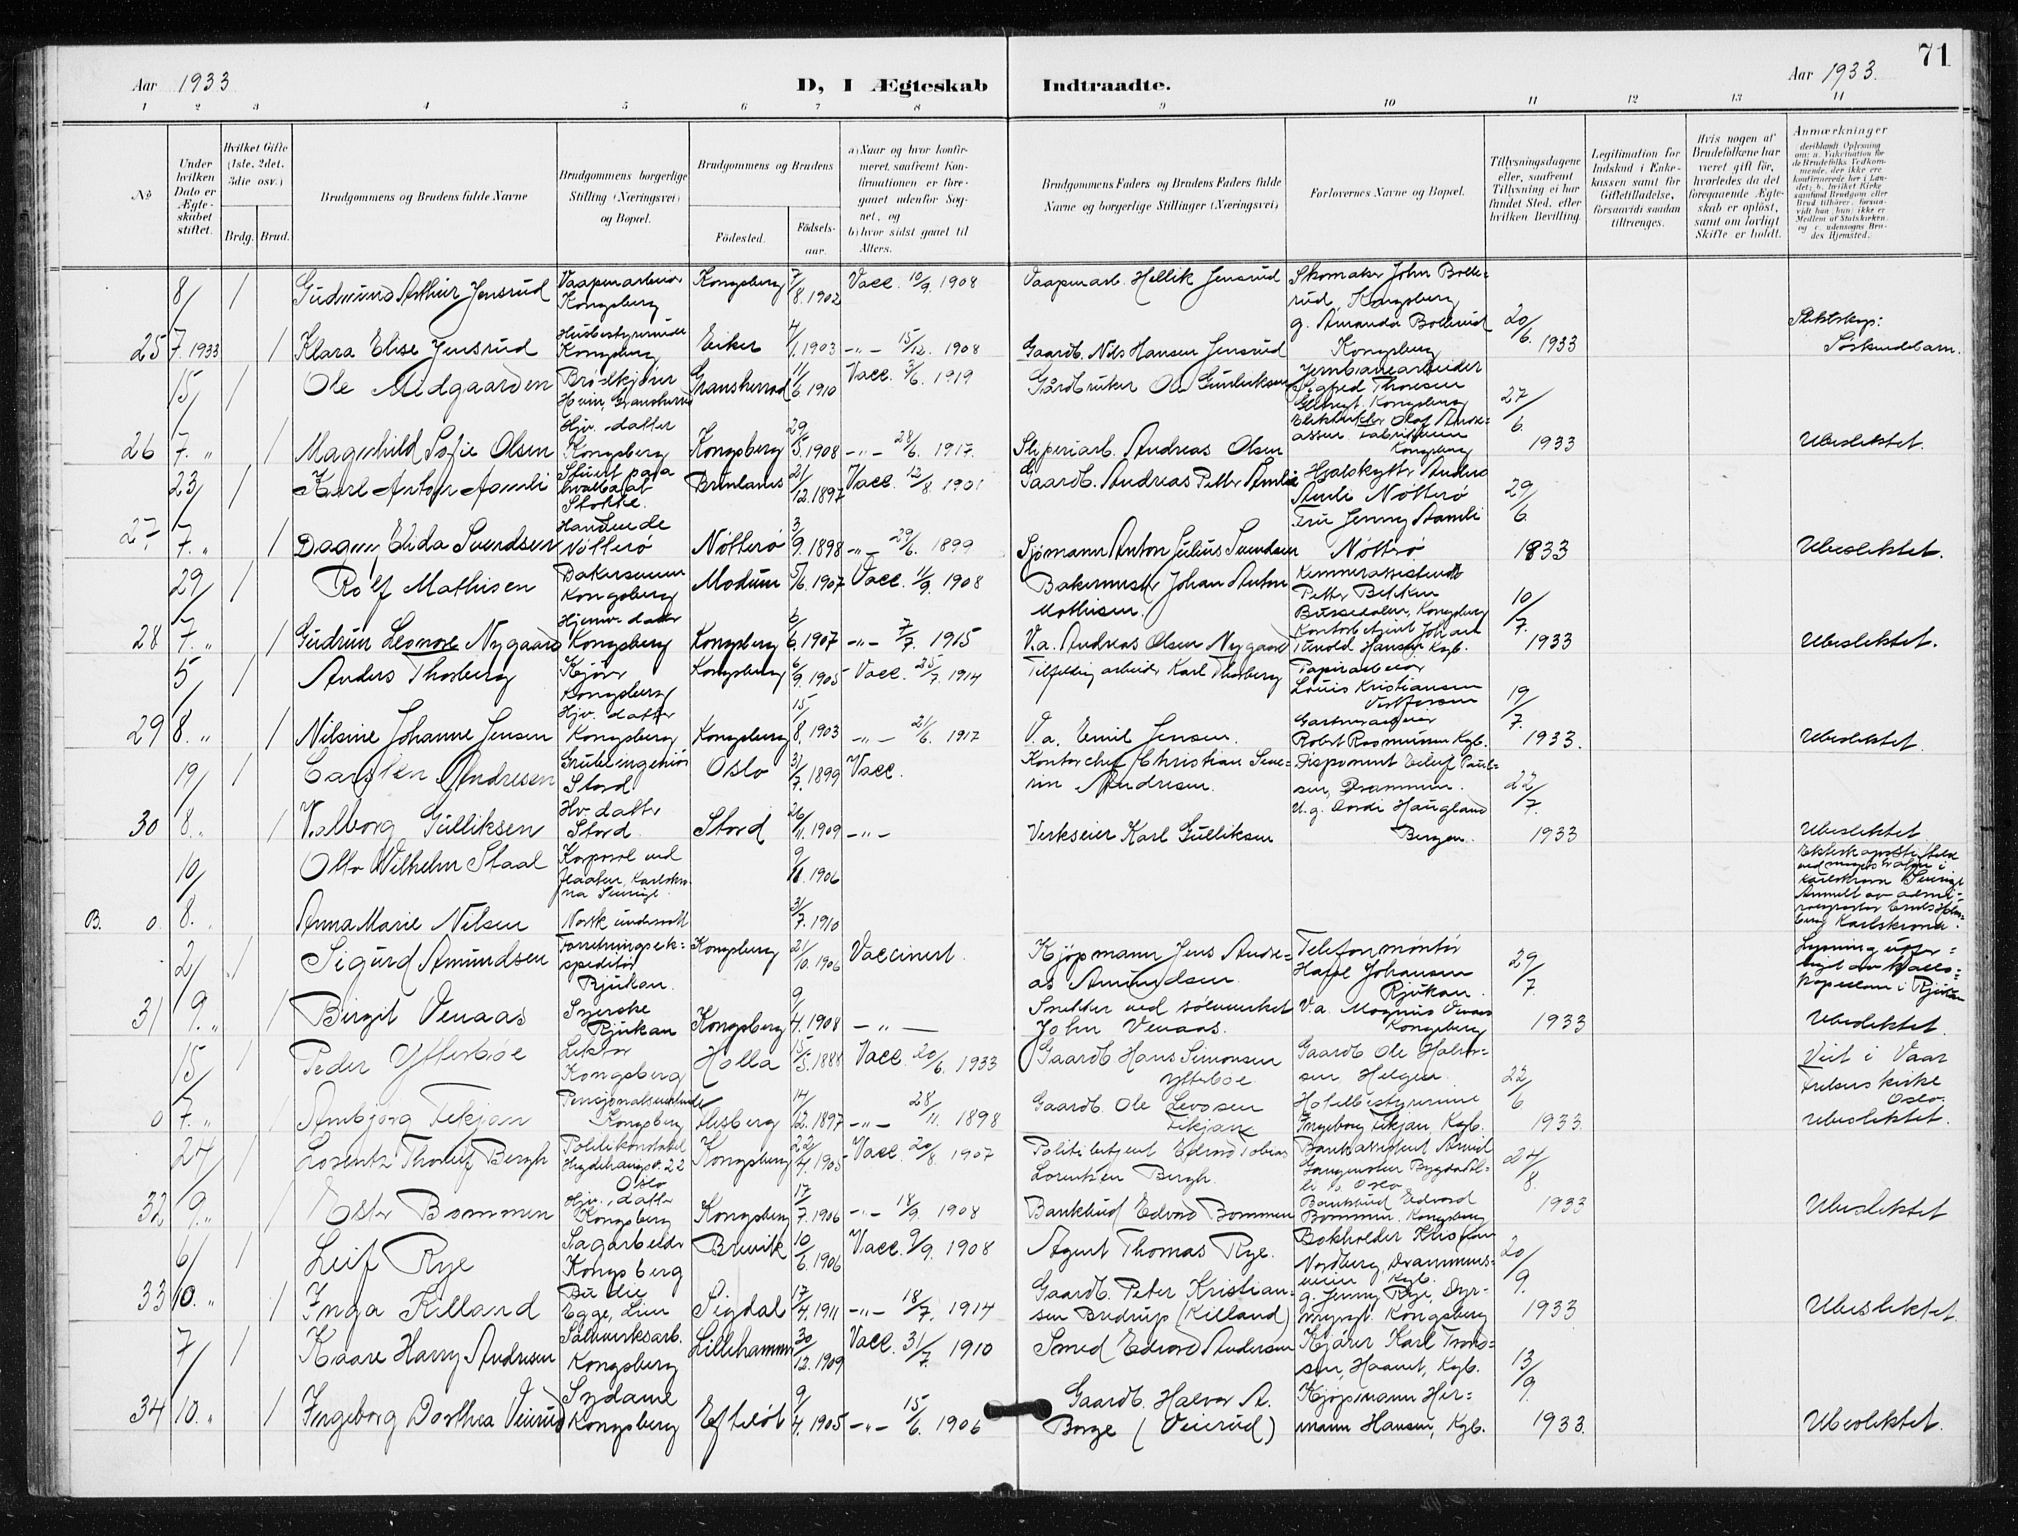 71
Aar 1933
D, I Ægteskab Indtraadte.
Aar 1933.
1 2 3 4 5 6 7 8 9 10 11 12 13 14
No
Under hvilken Dato er Ægteskabet stiftet.
Hvilket Gifte (1ste, 2det, 3die osv.)
Brdg. Brud.
Brudgommens og Brudens fulde Navne
Brudgommens borgerlige Stilling (Næringsvei) og Bopæl.
Brudgommens og Brudens
Fødested. Fødsels-aar.
a) Naar og hvor konfirmeret, saafremt Konfirmationen er foregaaet udenfor Sognet, og
b) hvor sidst gaaet til Alters.
Brudgommens Faders og Brudens Faders fulde Navne og borgerlige Stillinger (Næringsvei)
Forlovernes Navne og Bopæl.
Tillysningsdagene eller, saafremt Tillysning ei har fundet Sted, efter hvilken Bevilling.
Legitimation for Indskud i Enkekassen samt for Giftetilladelse, forsaavidt saadan tiltrænges.
Hvis nogen af Brudefolkene har været gift før, hvorledes da det foregaaende Ægteskab er opløst, samt om lovligt Skifte er holdt.
Anmærkninger
8/ 1 Gudmund Arthur Jensrud Vaapenarbeider Kongsberg Kongsberg 7/8. 1902 Vacc. 10/9. 1908 Vaapenarb. Hellik Jensrud Skomaker John Bollerud, Kongsberg
25 7. 1933 1 Klara Elise Jensrud Husbestyrerinde Kongsberg Eiker 4/1. 1903 -"- 15/12. 1908 Gaardb. Nils Hansen Jensrud g. Amanda Bollerud Kongsberg 20/6. 1933 Slektskap: Søskendebarn.
15/ 1 Ole Medgaarden Brødkjører Gransherad 11/6 1910 Vacc. 1919 Gårdbruker Ole Gunleiksen Jernbanearbeider Sigfred Thoresen Kongsberg 27/6.
26 7. " 1 Magnhild Sofie Olsen Hjv. datter Kongsberg Kongsberg 29/5. 1908 -"- 28/6. 1917. Sliperiarb. Andreas Olsen Kongsberg 1933 Ubeslektet.
23/ 1 Karl Anton Aamli Stuert paa hvalbaat Stokke. Brunlanes 21/12. 1897 Vacc. 12/8. 1901 Gaardb. Andreas Petter Amlie Hvalskytter Anders Amli Nøtterø 29/6.
27. 7. " 1 Dagny Elida Svendsen Nøtterø Nøtterø 3/9. 1898 -"- 29/6. 1899 Sjømann Anton Julius Svendsen Fru Jenny Aamli Nøtterø 1933 Ubeslektet.
29/ 1 Rolf Mathisen Bakersvenn Kongsberg Modum 5/6. 1907 Vacc. 11/9. 1908 Bakermester Johan Anton Mathisen. Kemnerassistent Petter Bekken Bussedalen, Kongsberg 10/7.
28 7. " 1 Gudrun Leonore Nygaard Hjemv. datter Kongsberg Kongsberg 6/6. 1907 -"- 7/7. 1915 V.a. Andreas Olsen Nygaard Kontorbetjent Johan Hansen Kgb. 1933 Ubeslektet.
5/ 1 Anders Thorberg Kjører Kongsberg Kongsberg 6/9. 1905 Vacc. 25/7. 1914 Tilfeldig arbeider Karl Thorberg Papirarbeider Louis Kristiansen Vestfossen 19/7.
29 8. " 1 Nilsine Johanne Jensen Hjv. datter Kongsberg Kongsberg 15/8. 1903 -"- 21/6. 1917 V.a. Emil Jensen. Robert Rasmussen Kgb. 1933. Ubeslektet.
19/ 1 Carsten Andresen Grubeingeniør Stord Oslo 31/7. 1899 Vacc. Kontorchef Christian Severin Andresen. Disponent Paulsen, Drammen. 22/7.
30 8. " 1 Valborg Gulliksen Hv. datter Stord. Stord 26/11. 1909 -"- Verkseier Karl Gulliksen Haugland Bergen. 1933 Ubeslektet
10/ Otto Wilhelm Staal Korporal ved flaaten, Karlskrona Sverige. 1906
B. 0 8. Anna Marie Nilsen Norsk undersått 31/7. 1910 Karlskrona.
2/ 1 Sigurd Amundsen Forretningsekspeditør Rjukan. Kongsberg 21/10. 1906 Vaccinert. Kjøpmann Jens Andreas Amundsen. Telefonmontør Johansen Rjukan. 29/7. Rjukan
31 9. " 1 Birgit Venaas Syerske Rjukan Kongsberg 9/4. 1908 -"- Snekker ved sølvverket John Venaas. V.a. Magnus Venaas Kongsberg 1933 Ubeslektet.
15/ 1 Peder Ytterbøe Lektor Kongsberg Holla 15/5. 1888 Vacc. 20/6. 1933 Gaardb Hans Simonsen Ytterbøe Gaardb Ole Halvorsen Helgen. 22/6 Viet i Vaar Frelsers kirke Oslo.
0 7. " 1 Ambjørg Tekjan Kongsberg Flesberg 14/12. 1897 -"- 28/11. 1898 Gaardb. Ole Levorsen Tekjan Hotellbestyrerinne Ingeborg Tekjan, Kgb. 1933. Ubeslektet.
24/ 1 Lorentz Thorleif Bergh Politikonstabel Oslo Kongsberg 22/4. 1905 Vacc. 20/8. 1907 Politibetjent Edvard Tobias Lorentzen Bergh. Bankassistent Oslo 24/8.
32 9. " 1 Ester Bommen Hjv. datter Kongsberg Kongsberg 17/7. 1906 -"- 18/9. 1908 Bankbud Edvard Bommen Bankbud Edvard Bommen, Kongsberg 1933 Ubeslektet
6/ 1 Leif Rye Sagarbeider Kongsberg Brevik 10/6. 1906 Vacc. 9/9. 1908 Agent Thomas Rye. Bokholder Kristian Nordberg, Drammensveien Kgb. 20/9.
33 10. " 1 Inga Killand Budeie Egge, Lier Sigdal 17/4. 1911 -"- 18/7. 1914 Gaardb. Peter Kristiansen Budrup (Killand) g. Jenny Rye, Kongsberg 1933 Ubeslektet.
7/ 1 Kaare Harry Andresen Sølvverksarb. Kongsberg Lillehammer 30/12. 1909 Vacc. 31/7. 1910 Smed Edvard Andersen Kjører Karl Trondsen, Kgb. 13/9.
34 10. " 1 Ingeborg Dorthea Veierud Sydame Kongsberg Efteløt 9/4. 1905 -"- 15/6. 1906 Gaardb. Halvor A. Borge (Veierud) Kjøpmann Hermann Hansen, Kgb. 1933. Ubeslektet.